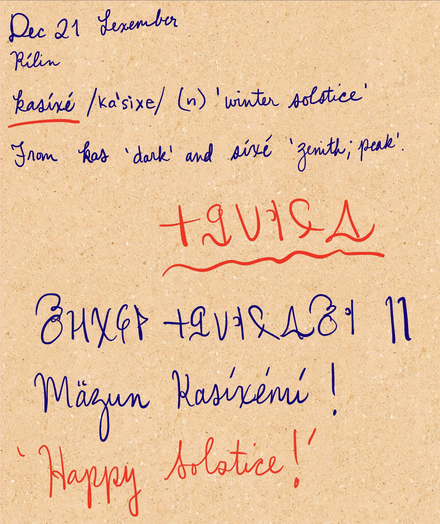 Dec 21 Lexember
Rílin
kasíxé /ka'sixe/ (n) 'winter solstice'
From kas 'dark' and síxé 'zenith; peak'.
Mäzun Kasíxémí !
'Happy solstice!'